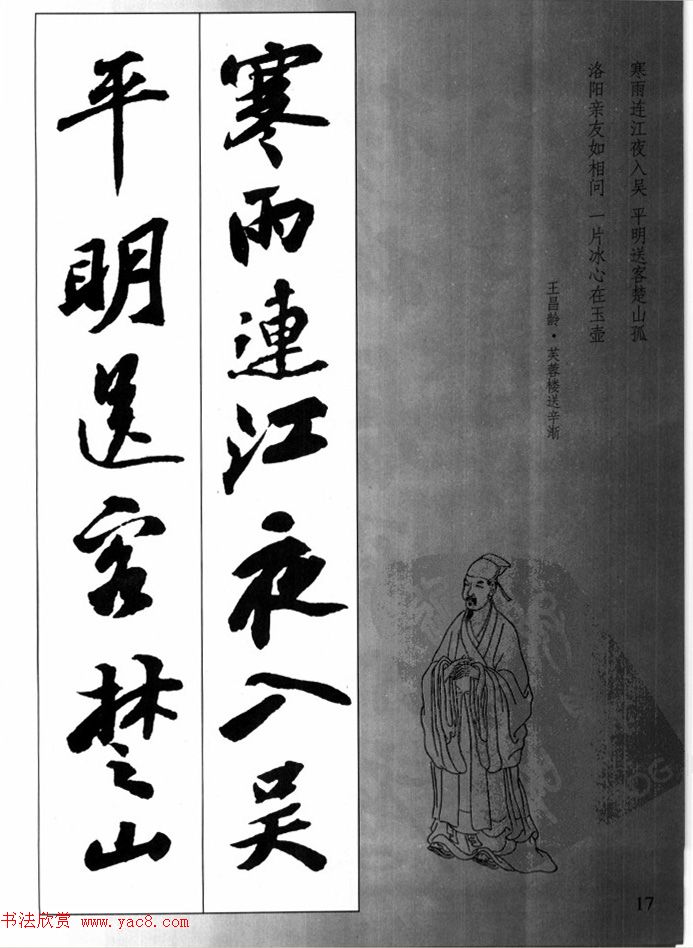 寒雨连江夜入吴 平明送客楚山孤
洛阳亲友如相问 一片冰心在玉壶
王昌龄·芙蓉楼送辛渐
寒雨連江夜入吴
平明送客楚山
17
书法欣赏 www.yac8.com